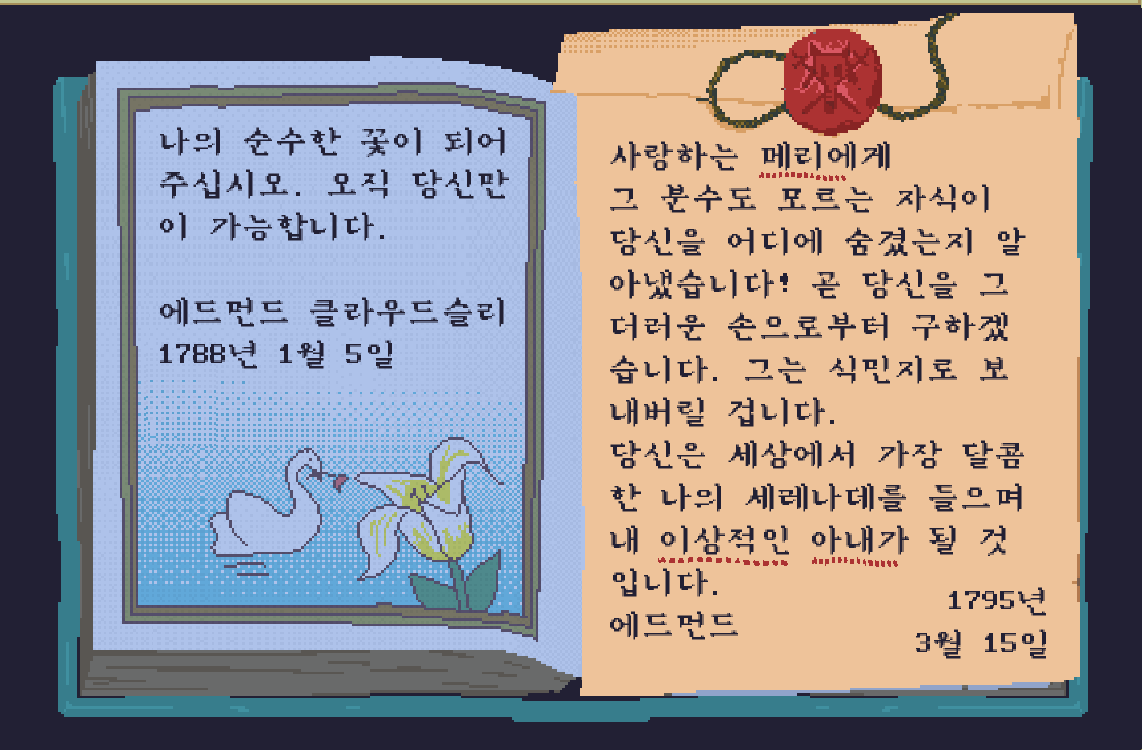 나의 순수한 꽃이 되어
주십시오. 오직 당신만
이 가능합니다.
에드먼드 클라우드슬리
1788년 1월 5일
사랑하는 메리에게
그 분수도 모르는 자식이
당신을 어디에 숨겼는지 알
아냈습니다! 곧 당신을 그
더러운 손으로부터 구하겠
습니다. 그는 식민지로 보
내버릴 겁니다.
당신은 세상에서 가장 달콤
한 나의 세레나데를 들으며
내 이상적인 아내가 될 것
입니다.
에드먼드
1795년
3월 15일